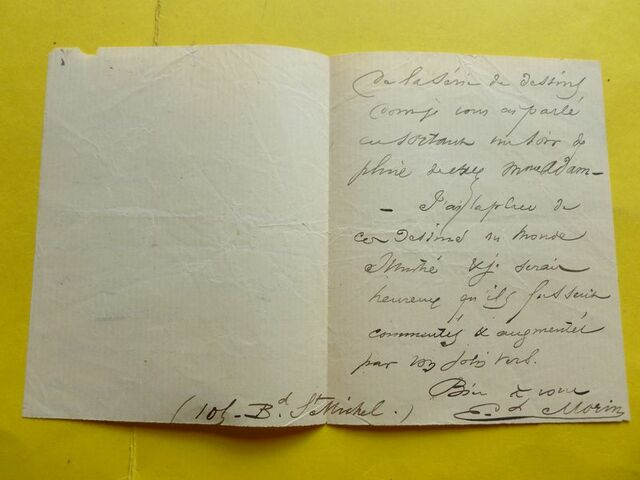 de la série de dessins
dont je vous ai parlé
en sortant un soir de
pluie de chez Mme Adam —
— J'ai la place de
ces dessins au monde
illustré & je serais
heureux qu'ils fussent
commentés & augmentés
par vos jolis vers.
Bien à vous
Ed Morin
(105 - Bd St Michel.)